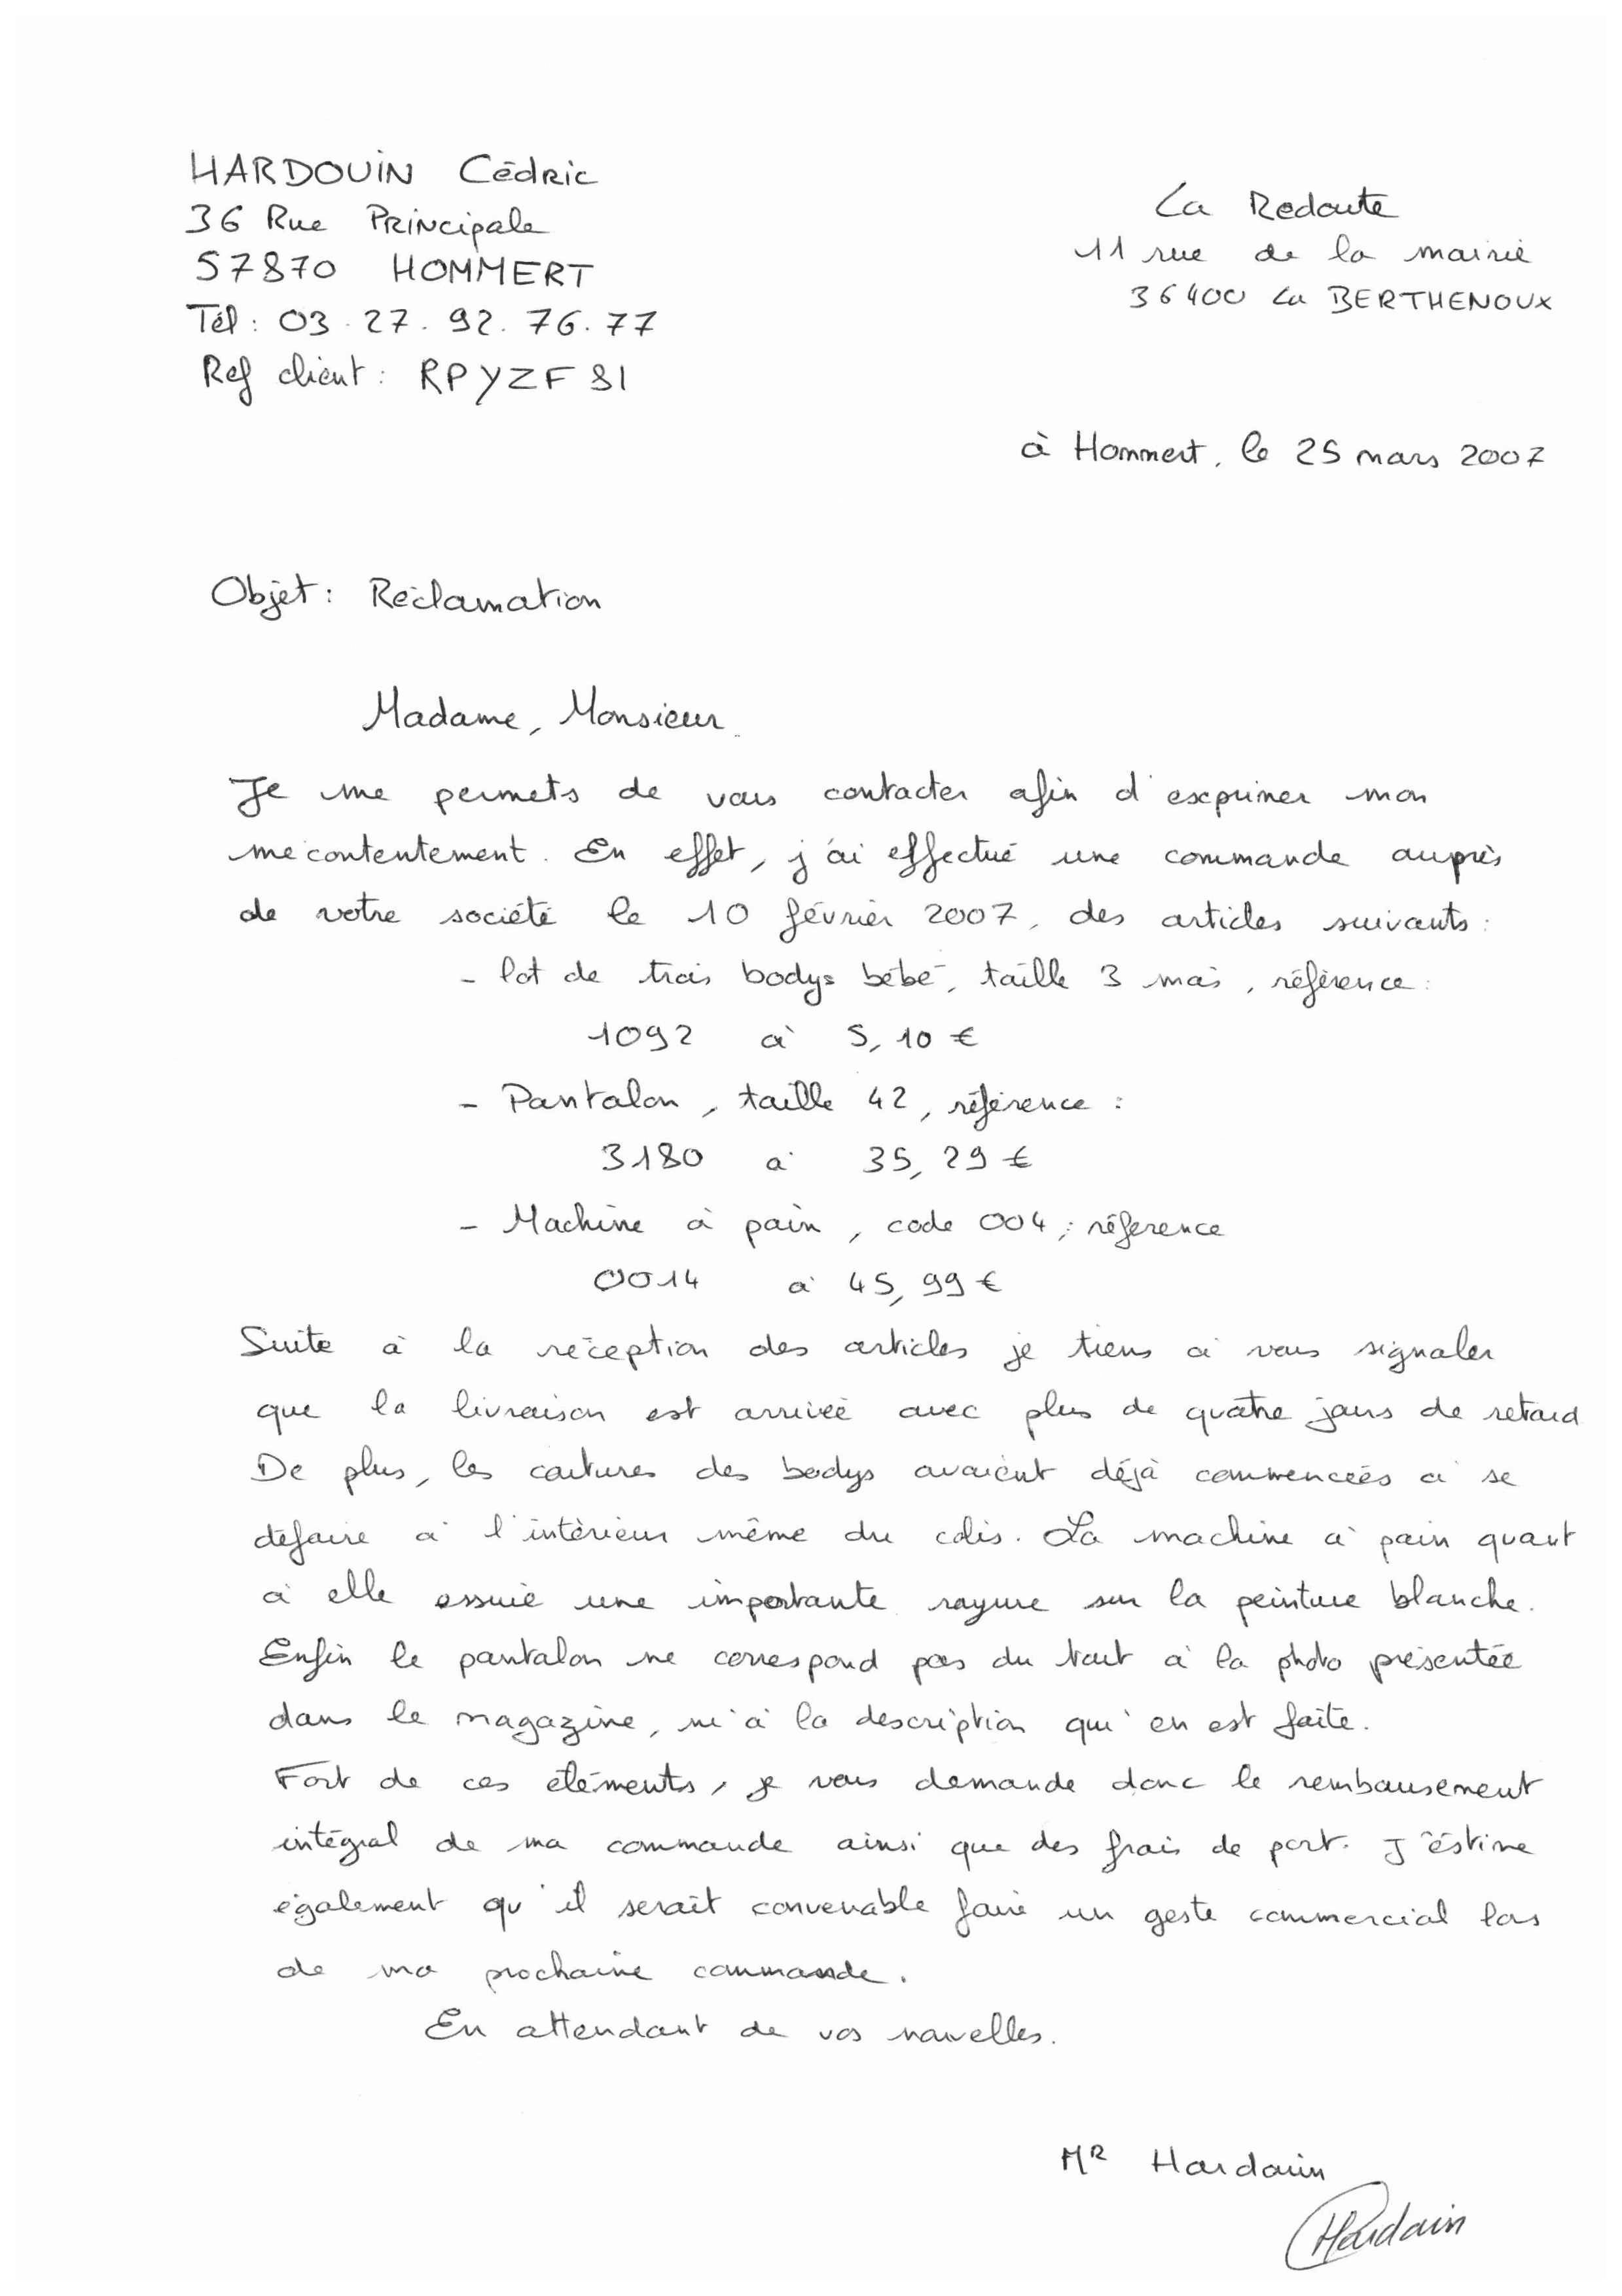 HARDOUIN Cédric
36 Rue Principale
57870 HOMMERT
Tél : 03.27.92.76.77
Ref client : RPYZF81
La Redoute
11 rue de la mairie
36400 La BERTHENOUX
à Hommert, le 25 mars 2007
Objet : Réclamation
Madame, Monsieur.
Je me permets de vous contacter afin d'exprimer mon
mécontentement. En effet, j'ai effectué une commande auprès
de votre société le 10 février 2007, des articles suivants :
- lot de trois bodys bébé, taille 3 mois, référence :
1092 à 5,10 €
- Pantalon, taille 42, référence :
3180 à 35,29 €
- Machine à pain, code 004 ; référence
0014 à 45,99 €
Suite à la réception des articles je tiens à vous signaler
que la livraison est arrivée avec plus de quatre jours de retard
De plus, les coutures des bodys avaient déjà commencées à se
défaire à l'intérieur même du colis. La machine à pain quant
à elle essuie une importante rayure sur la peinture blanche.
Enfin le pantalon ne correspond pas du tout à la photo présentée
dans le magazine, ni à la description qui en est faite.
Fort de ces éléments, je vous demande donc le remboursement
intégral de ma commande ainsi que des frais de port. J'éstime
également qu'il serait convenable faire un geste commercial lors
de ma prochaine commande.
En attendant de vos nouvelles.
MR Hardouin
Hardouin